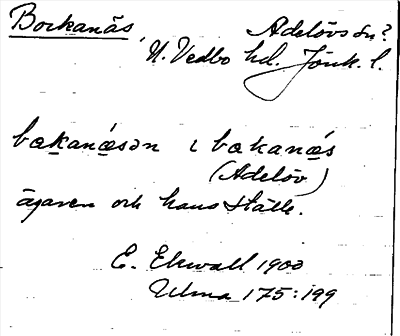 Bockanäs, Adelövs sn?
N. Vedbo hd. Jönk. l.
bakanǽsən i bakanǽs
(Adelöv)
ägaren och hans ställe.
E. Ekwall 1900
Ulma 175:199